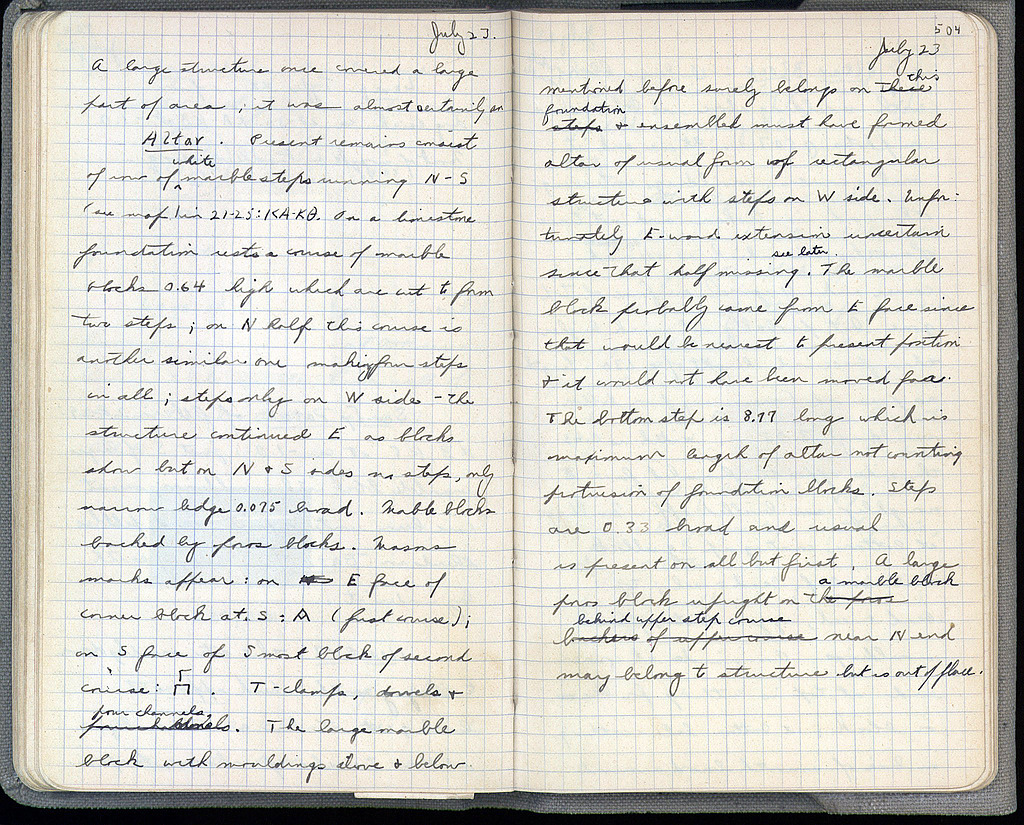 July 23.
A large structure once covered a large
part of area ; it was almost certainly an
Altar . Present remains consist
white
of row of marble steps running N-S
(see map) in 21-25:ΚΑ-ΚΘ. On a limestone
foundation rests a course of marble
blocks 0.64 high which are cut to form
two steps ; on N half this course is
another similar one making four steps
in all ; steps only on W side - the
structure continued E as blocks
show but on N & S sides no steps, only
narrow ledge 0.075 broad. Marble blocks
backed by poros blocks. Masons
marks appear : on E face of
corner block at S : A (first course) ;
on S face of S most block of second
course: Γ Π . T-clamps, dowels &
pour channels.
The large marble
block with mouldings above & below
504
July 23
this
mentioned before surely belongs on these
foundation
steps & ensembled must have formed
altar of usual form of rectangular
structure with steps on W side. Unfor-
tunately E-ward extension uncertain
see later.
since that half missing. The marble
block probably came from E face since
that would be nearest to present position
& it would not have been moved far.
The bottom step is 8.77 long which is
maximum length of altar not counting
protrusion of foundation blocks. Steps
are 0.33 broad and usual
is present on all but first. A large
a marble block
poros block upright on the poros
behind upper step course
backers of upper course near N end
may belong to structure but is out of place.